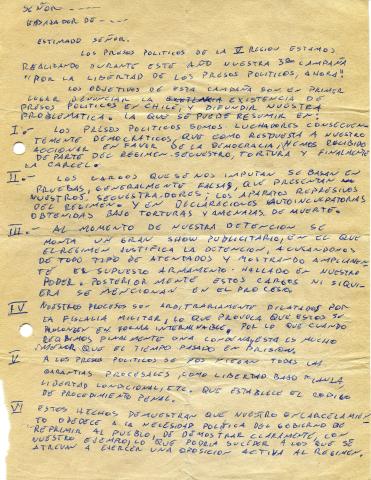 SEÑOR -----
EMBAJADOR DE ----
ESTIMADO SEÑOR.
LOS PRESOS POLITICOS DE LA V REGION ESTAMOS
REALIZANDO DURANTE ESTE AÑO NUESTRA 3ra CAMPAÑA
"POR LA LIBERTAD DE LOS PRESOS POLITICOS, AHORA".
LOS OBJETIVOS DE ESTA CAMPAÑA SON EN PRIMER
LUGAR DENUNCIAR LA EXISTENCIA DE
PRESOS POLITICOS EN CHILE, Y DIFUNDIR NUESTRA
PROBLEMATICA. LA QUE SE PUEDE RESUMIR EN:
I.- LOS PRESOS POLITICOS SOMOS LUCHADORES CONSECUEN
TEMENTE DEMOCRÁTICOS, QUE COMO RESPUESTA A NUESTRO
ACCIONAR EN FAVOR DE LA DEMOCRACIA, HEMOS RECIBIDO
DE PARTE DEL REGIMEN. SECUESTRO, TORTURA Y FINALMENTE
LA CARCEL.
II.- LOS CARGOS QUE SE NOS IMPUTAN SE BASAN EN
PRUEBAS, GENERALMENTE FALSAS, QUE PRESENTAN
NUESTROS, SECUESTRADORES; LOS APARATOS REPRESIVOS
DEL REGIMEN Y EN DECLARACIONES AUTOINCULPATORIAS
OBTENIDAS BAJO TORTURAS Y AMENAZAS DE MUERTE.
III.- AL MOMENTO DE NUESTRA DETENCION SE
MONTA UN GRAN SHOW PUBLICITARIO, EN EL QUE
EL REGIMEN JUSTIFICA LA DETENCION, ACUSANDONOS
DE TODO TIPO DE ATENTADOS Y MOSTRANDO AMPLIAMEN
TE EL SUPUESTO ARMAMENTO HALLADO EN NUESTRO
PODER. POSTERIORMENTE ESTOS CARGOS NI SIQUI
ERA SE MENCIONAN EN EL PROCESO.
IV NUESTROS PROCESOS SON ARBITRARIAMENTE DILATADOS POR
LA FISCALIA MILITAR, LO QUE PROVOCA QUE ESTOS SE
PROLONGEN EN FORMA INTERMINABLE, POR LO QUE CUANDO
RECIBIMOS FINALMENTE UNA CONDENA, ESTA ES MUCHO
MENOR QUE EL TIEMPO PASADO EN PRISION.
V A LOS PRESOS POLITICOS SE NOS NIEGAN TODAS LAS
GARANTIAS PROCESALES, COMO LIBERTAD BAJO FIANZA,
LIBERTAD CONDICIONAL, ETC. QUE ESTABLECE EL CODIGO
DE PROCEDIMIENTO PENAL.
VI ESTOS HECHOS DEMUESTRAN QUE NUESTRO ENCARCELAMIEN
TO OBEDECE A LA NECESIDAD POLITICA DEL GOBIERNO DE
REPRIMIR AL PUEBLO, DE DEMOSTRAR CLARAMENTE, CON
NUESTRO EJEMPLO, LO QUE PODRIA SUCEDER A LOS QUE SE
ATREVAN A EJERCER UNA OPOSICION ACTIVA AL REGIMEN.